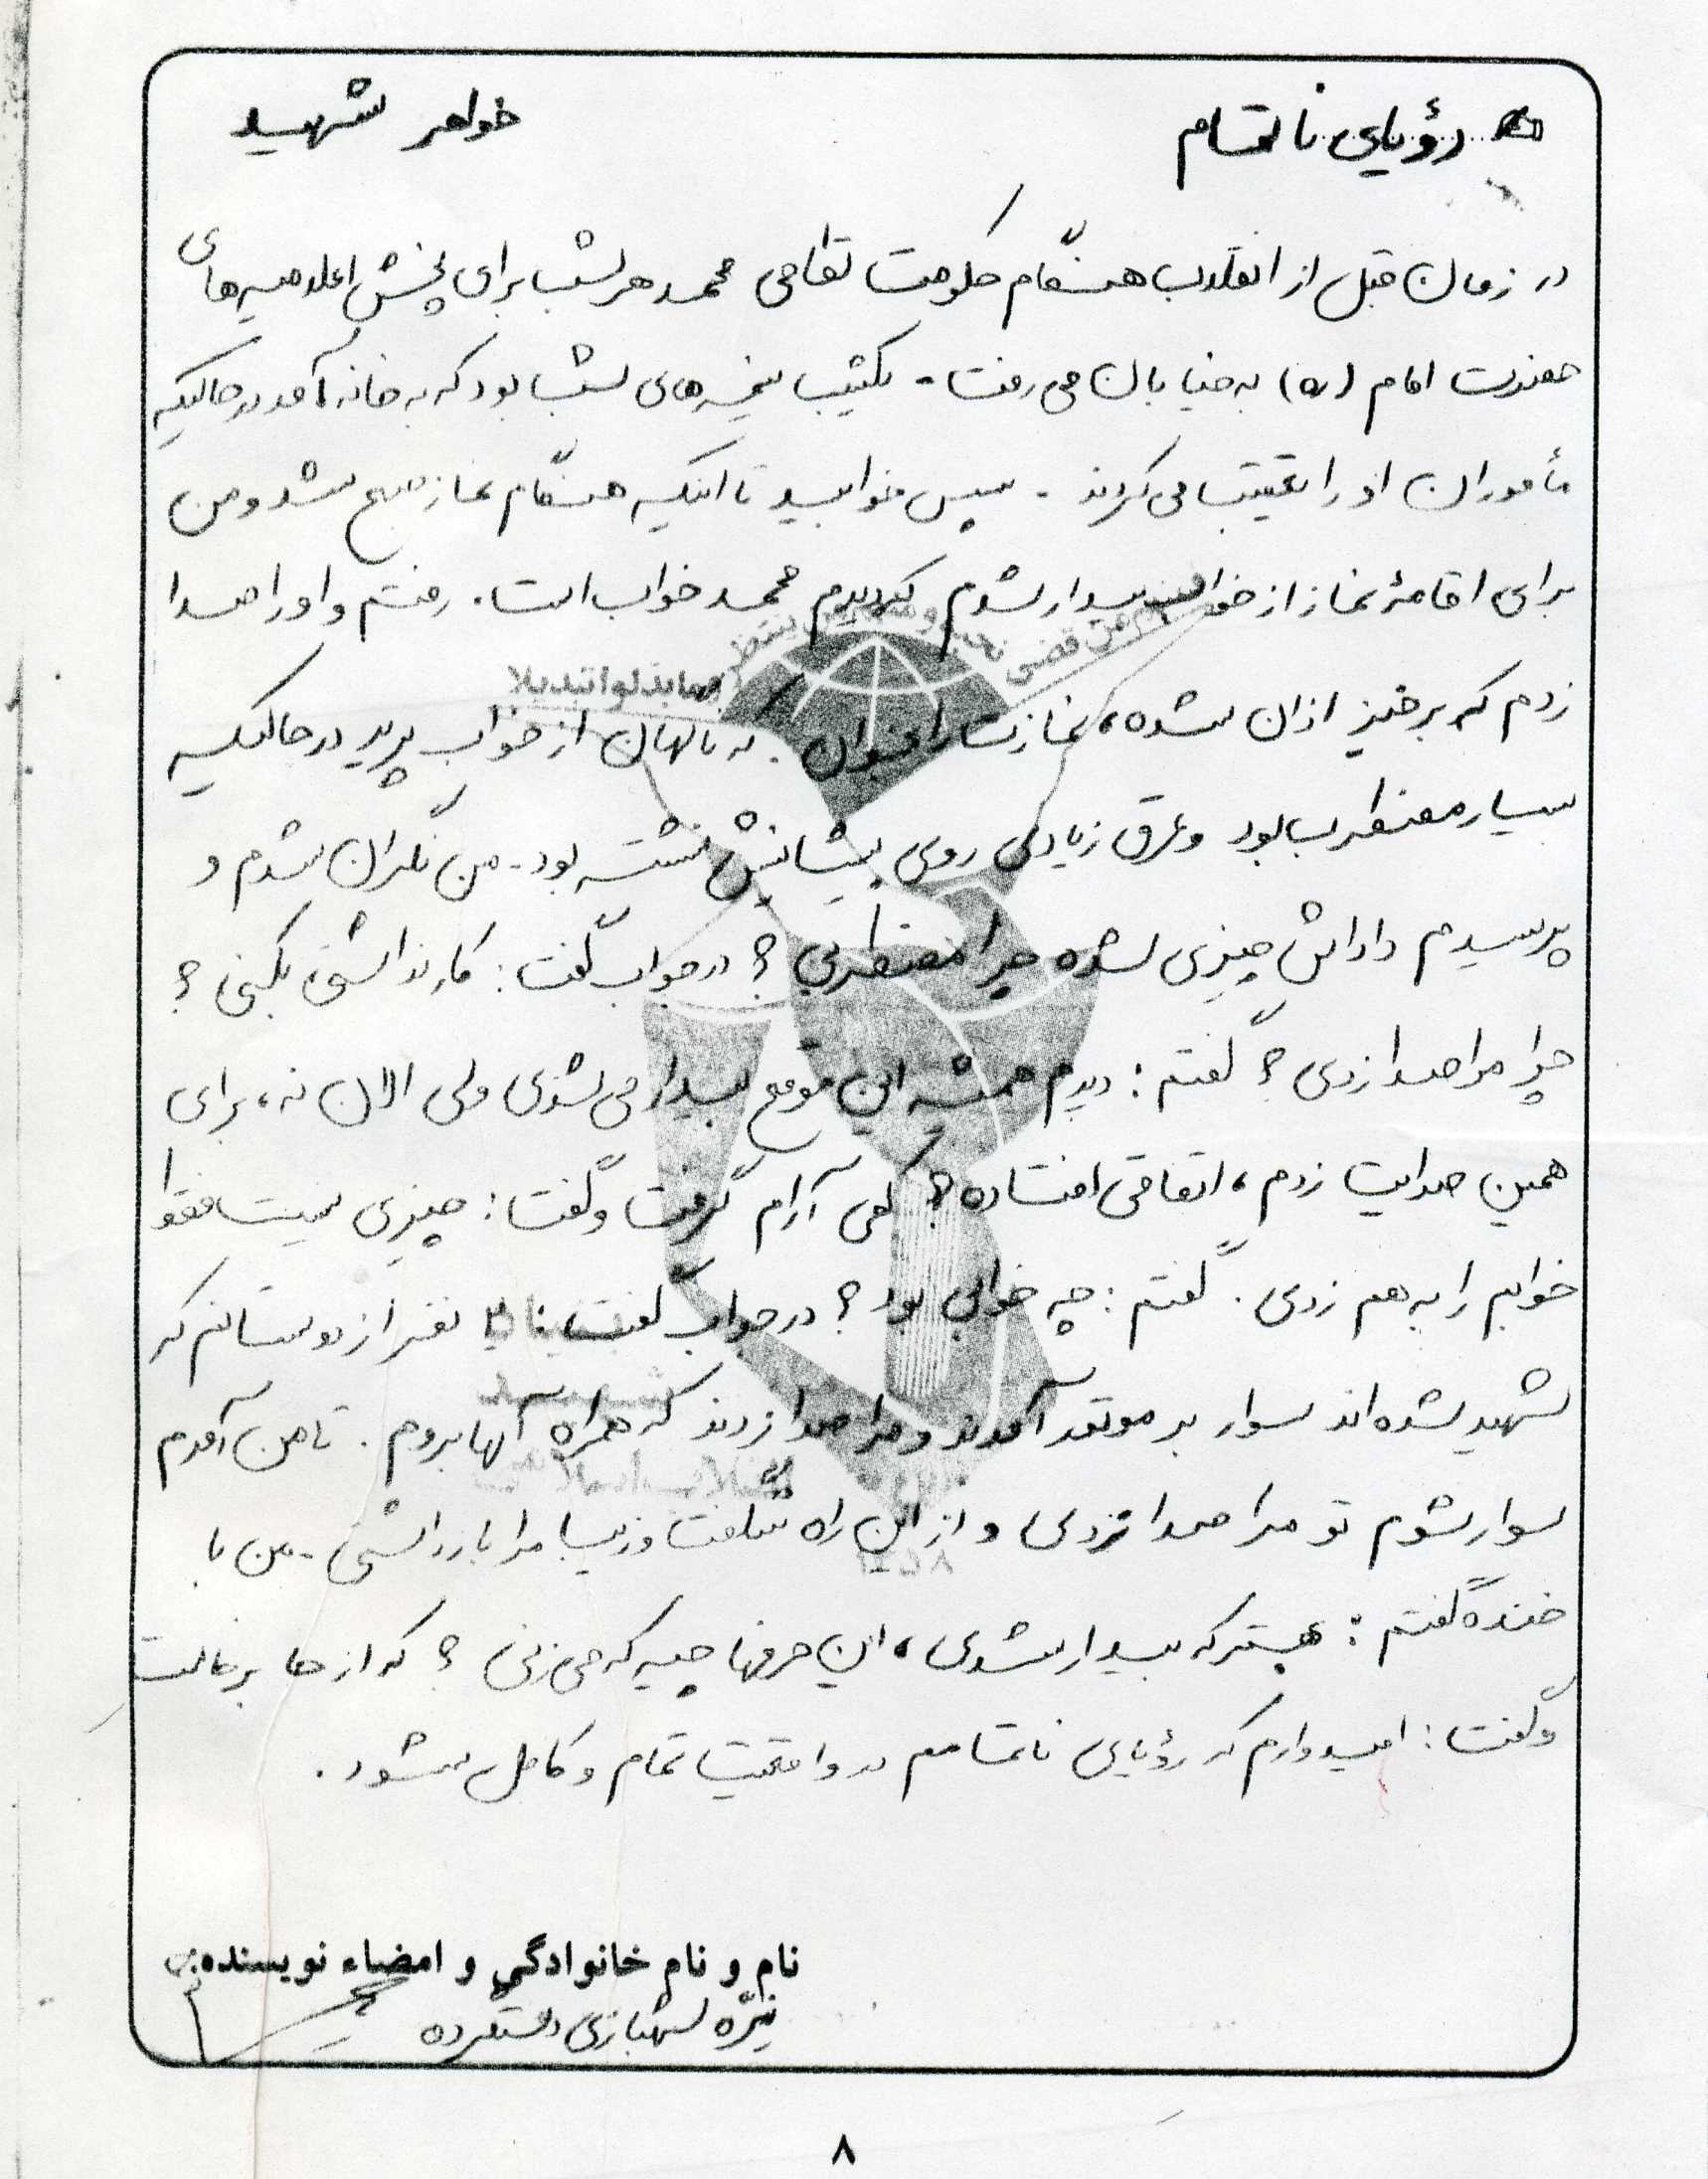 رؤیای ناتمام
خواهر شهید
در زمان قبل از انقلاب هنگام حکومت نظامی محمد هر شب برای پخش اعلامیه های
حضرت امام (ره) به خیابان می رفت - یکشب نیمه های شب بود که به خانه آمد در حالیکه
مأموران او را تعقیب می کردند - سپس خوابید تا اینکه هنگام نماز صبح شد و من
برای اقامهٔ نماز از خواب بیدار شدم که دیدم محمد خواب است . رفتم و او را صدا
زدم که برخیز اذان شده ، نمازت را بخوان . که ناگهان از خواب پرید در حالیکه
بسیار مضطرب بود و عرق زیادی روی پیشانیش نشسته بود - من نگران شدم و
پرسیدم داداش چیزی شده چرا مضطربی ؟ در جواب گفت : کار نداشتی بکنی ؟
چرا مرا صدا زدی ؟ گفتم : دیدم همیشه این موقع بیدار می شدی ولی الان نه ، برای
همین صدایت زدم ، اتفاقی افتاده ؟ کمی آرام گرفت و گفت : چیزی نیست فقط
خوابم را به هم زدی . گفتم : چه خوابی بود ؟ در جواب گفت : نفر از دوستانم که
شهید شده اند سوار بر موتور آمدند و مرا صدا زدند که همراه آنها بروم . تا من آمدم
سوار شوم تو مرا صدا زدی و از این راه و زیبا مرا بازداشتی - من با
خنده گفتم : بهتر که بیدار شدی ، این حرفها چیه که می زنی ؟ که از جا برخاست
و گفت : امیدوارم که رؤیای ناتمامم در واقعیت تمام و کامل شود .
نام و نام خانوادگی و امضاء نویسنده:
نیّره شهبازی دستگرده
۸